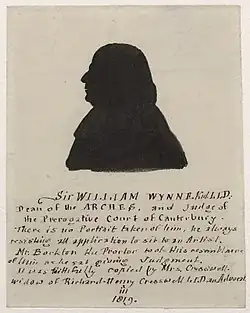 Sir WILLIAM WYNNE Knt LLD.
Dean of the ARCHES, and Judge of
the Prerogative Court of Canterbury.
There is no Portrait taken of him, he always
resisting all application to sit to an Artist.
Mr. Bockton the Proctor took this resemblance
of him as he sat giving Judgment.
It was faithfully copied by Mrs. Cresswell.
widow of Richard Henry Cresswell LLD. an Advocat
in
1819.